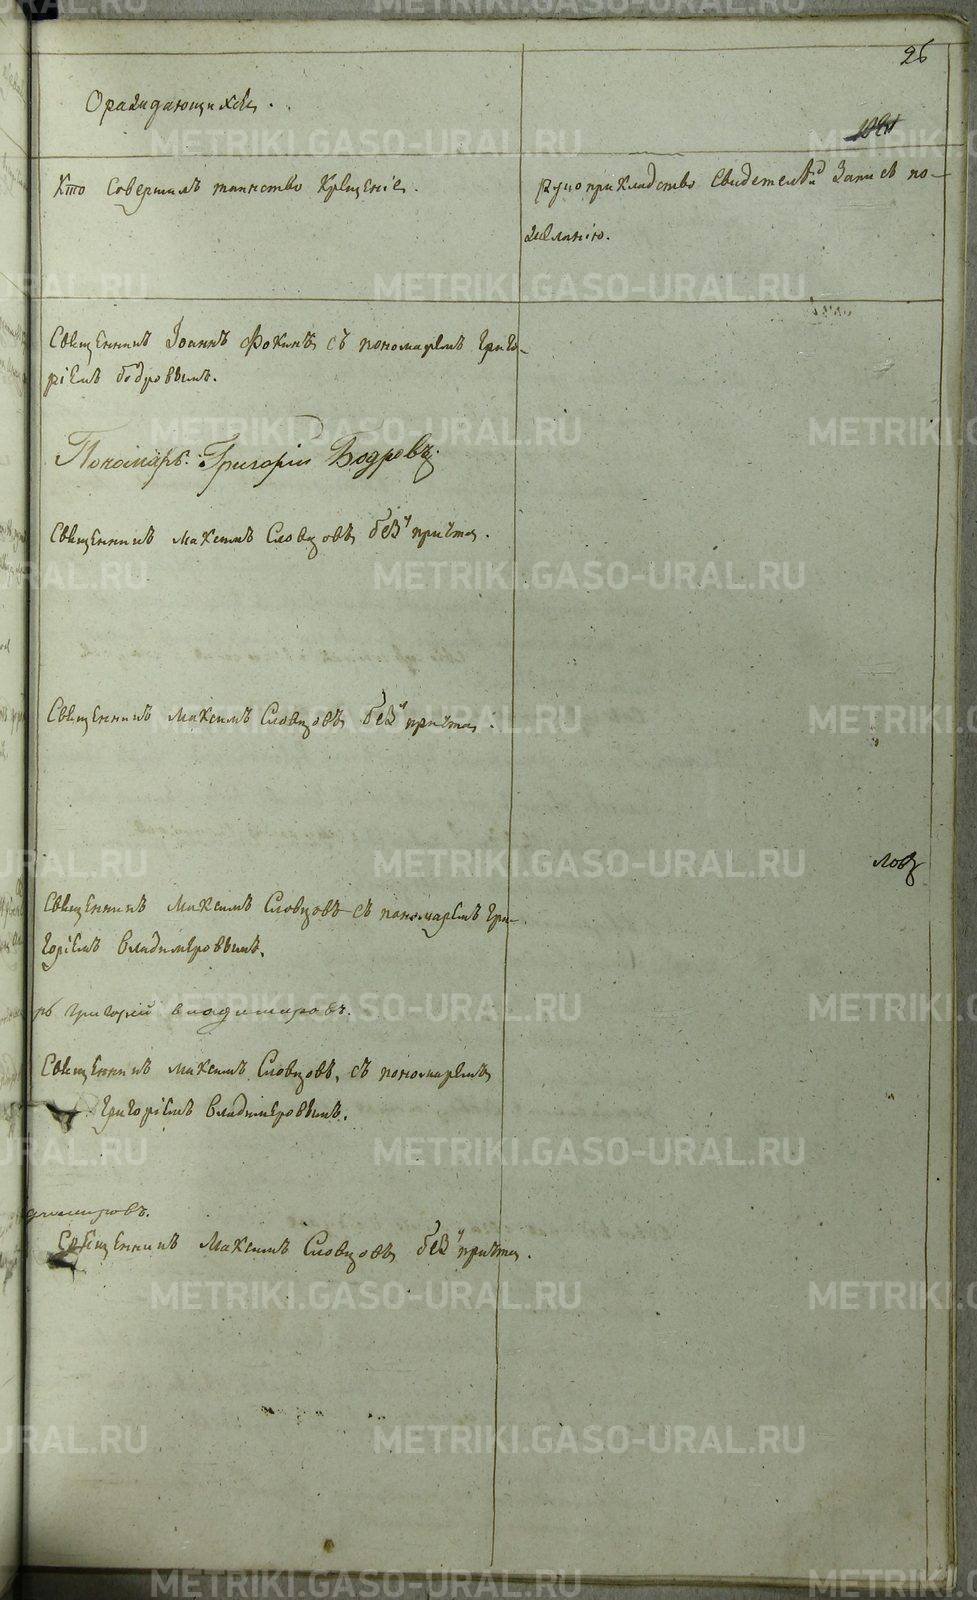 26
О раждающихся.
Кто Совершилъ таинство Крещенiе.
рукоприкладство Свидетелей Записѣ по
желанiю.
Священникъ Iоаннъ Фокинъ съ пономаремъ Григо-
рiемъ бодровымъ.
Пономарь: Григорiй Бодревъ.
Священникъ максимъ Словцовъ безъ причта.
Священникъ максимъ Словцовъ безъ причта.
лов
Священникъ максимъ Словцовъ съ пономаремъ Гри-
горiемъ владимеровымъ.
рь григорей владимировъ.
Священникъ максимъ Словцовъ, съ пономаремъ
Григорiемъ владимеровымъ.
димировъ.
Священникъ максимъ Словцовъ безъ причта.
METRIKI.GASO-URAL.RU